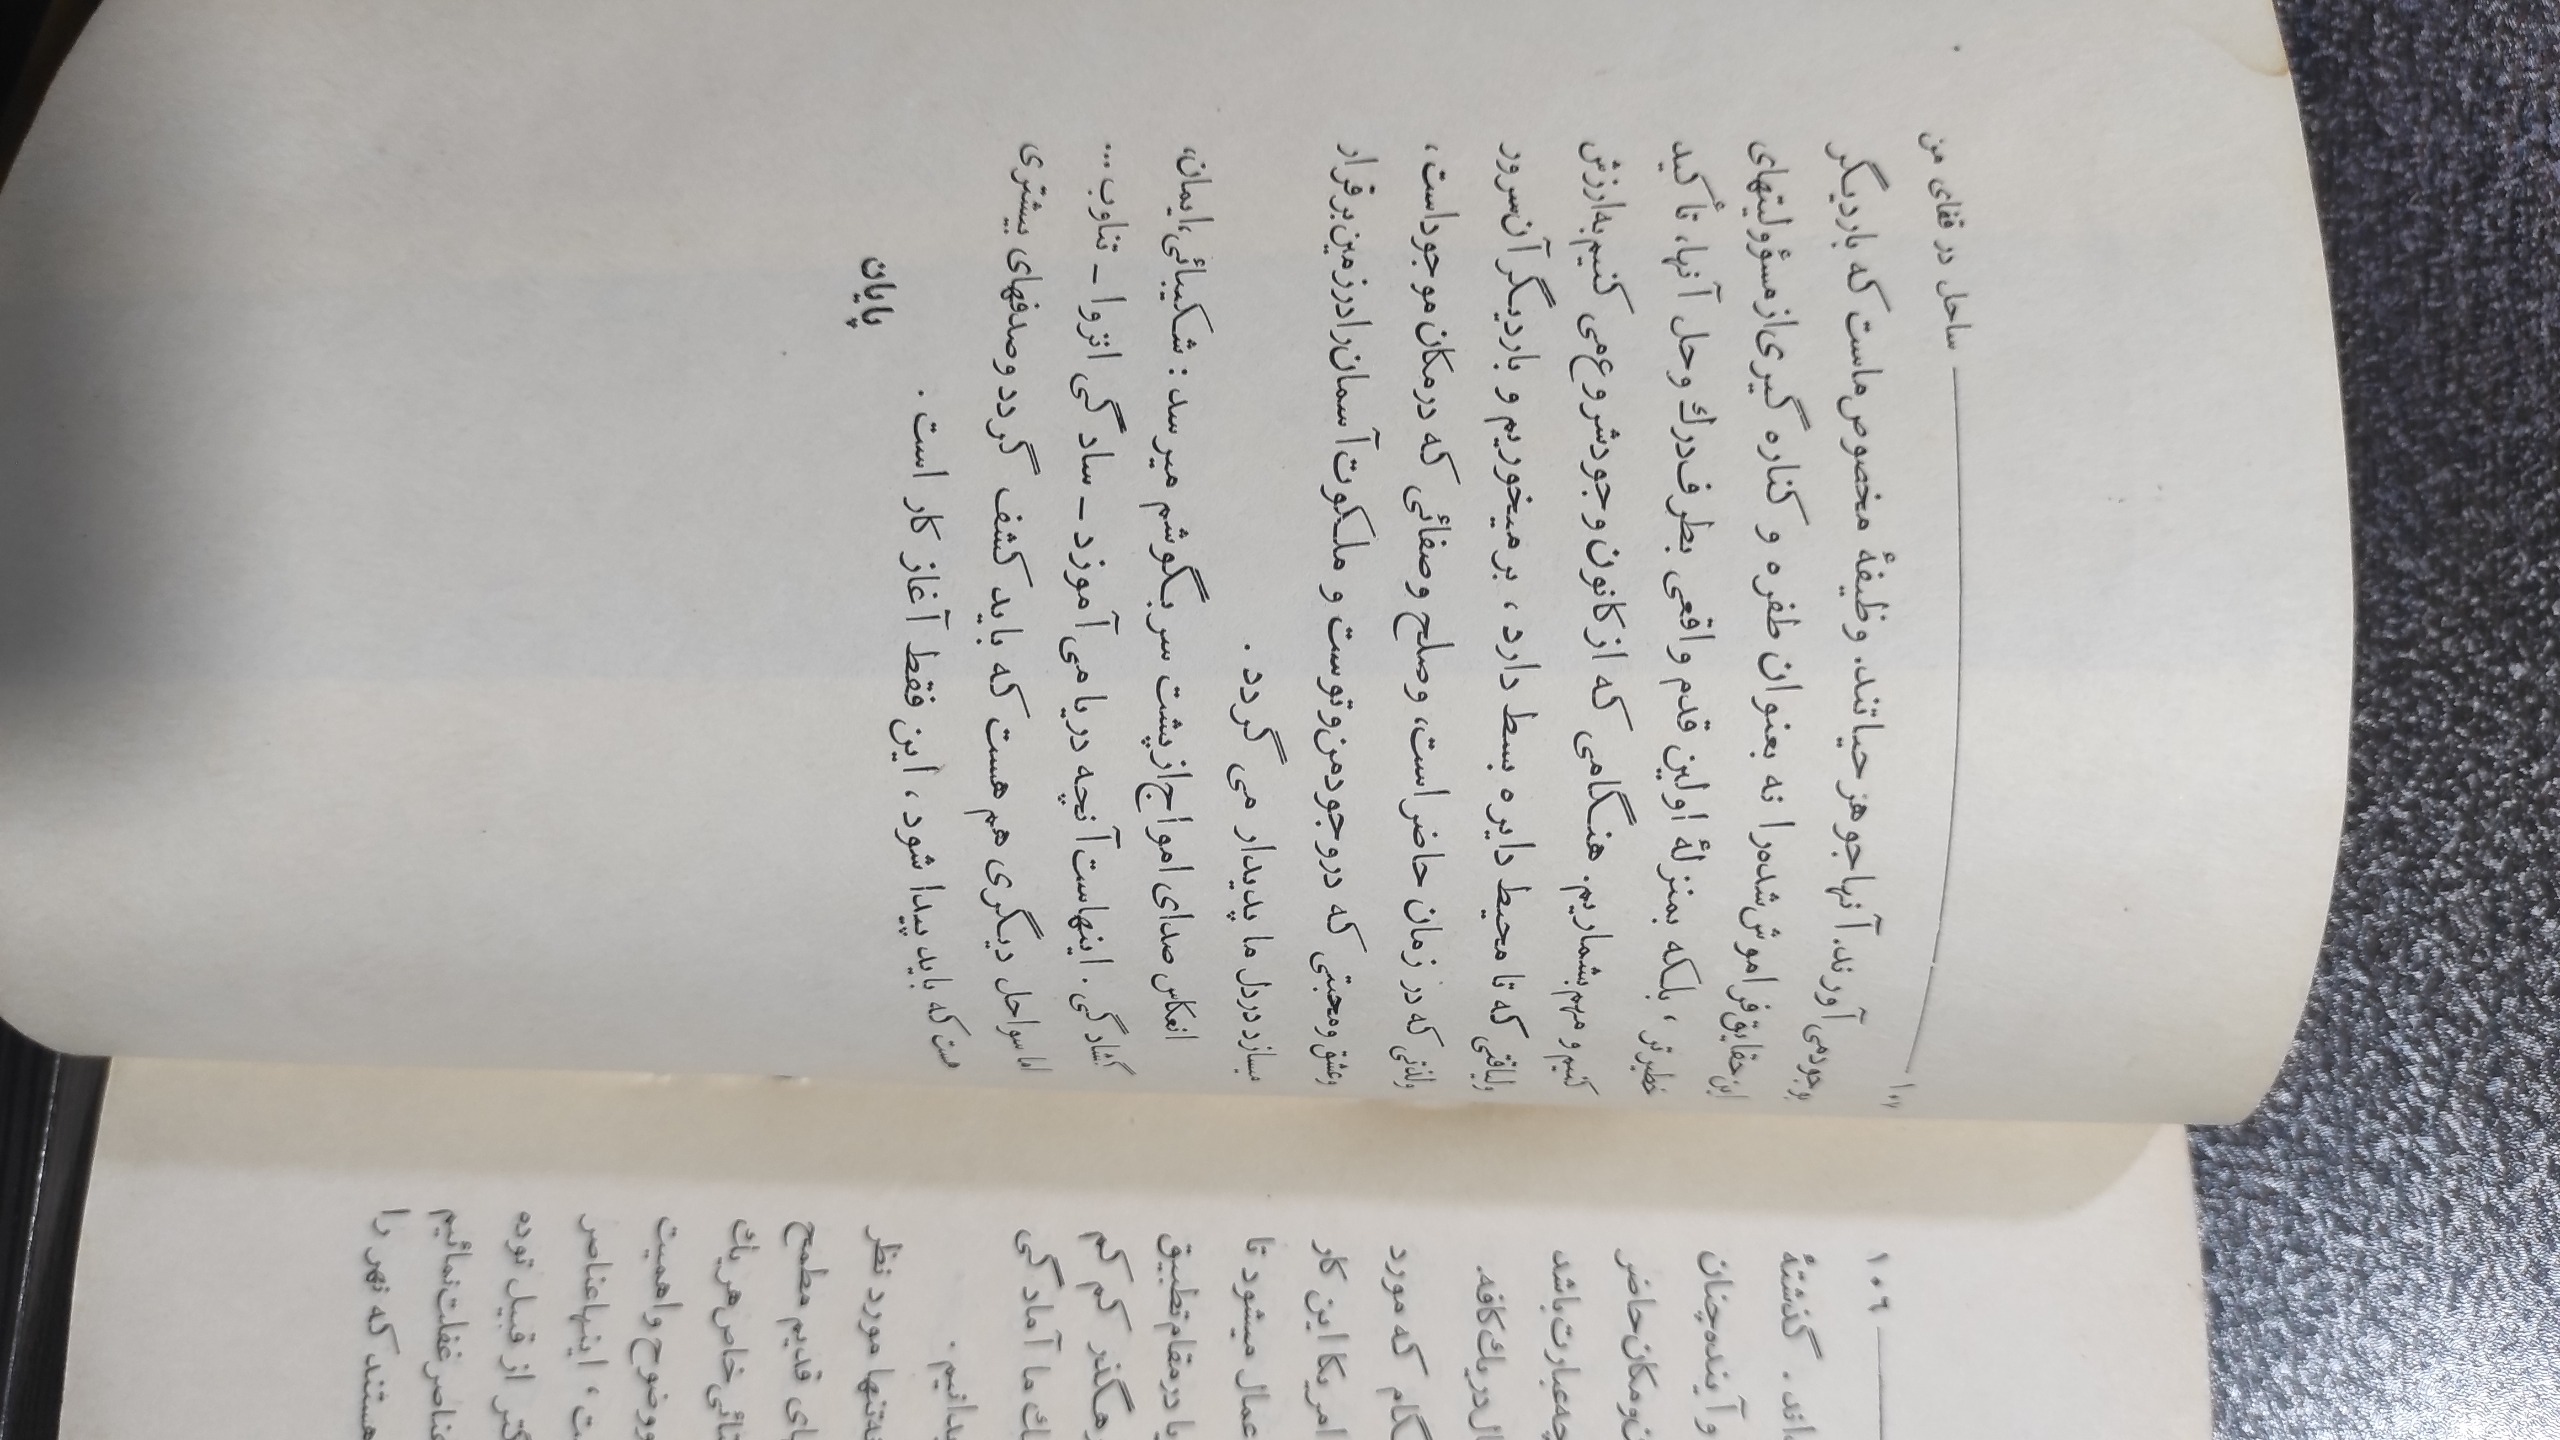 ساحل در قفای من
۱۰۷
بوجودمی آورند. آنهاجوهر حیاتند. وظیفهٔ مخصوص ماست که باردیگر
این حقایق فراموش شده را نه بعنوان طفره و کناره گیری ازمسؤولیتهای
خطیرتر، بلکه بمنزلهٔ اولین قدم واقعی بطرف درك وحل آنها، تأکید
کنیم و مهم بشماریم. هنگامی که از کانون وجود شروع می کنیم به ارزش
ولیاقتی که تا محیط دایره بسط دارد، برمیخوریم و باردیگر آن سرور
ولذتی که در زمان حاضراست، وصلح وصفائی که درمکان موجوداست،
وعشق ومحبتی که دروجودمن وتوست و ملکوت آسمان را درزمین برقرار
میسازد دردل ما پدیدار می گردد .
انعکاس صدای امواج ازپشت سر بگوشم میرسد : شکیبائی، ایمان،
گشادگی . اینهاست آنچه دریا می آموزد ـ سادگی انزوا ـ تناوب ...
اما سواحل دیگری هم هست که باید کشف گردد وصدفهای بیشتری
هست که باید پیدا شود، این فقط آغاز کار است .
پایان
۱۰۶
اند . گذشتهٔ
و آینده چنان
ومکان حاضر
چه عبارت باشد
ال دریك کافه.
گام که مورد
امریکا این کار
عمال میشود تا
یا درمقام تطبیق
رهگذر کم کم
ك ما آمادگی
بدانیم .
نه تنها مورد نظر
بای قدیم مطمح
تائی خاص هر یك
ووضوح واهمیت
ت، اینها عناصر
گتر از قبیل توده
عناصر غفلت نمائیم
هستند که نهر را